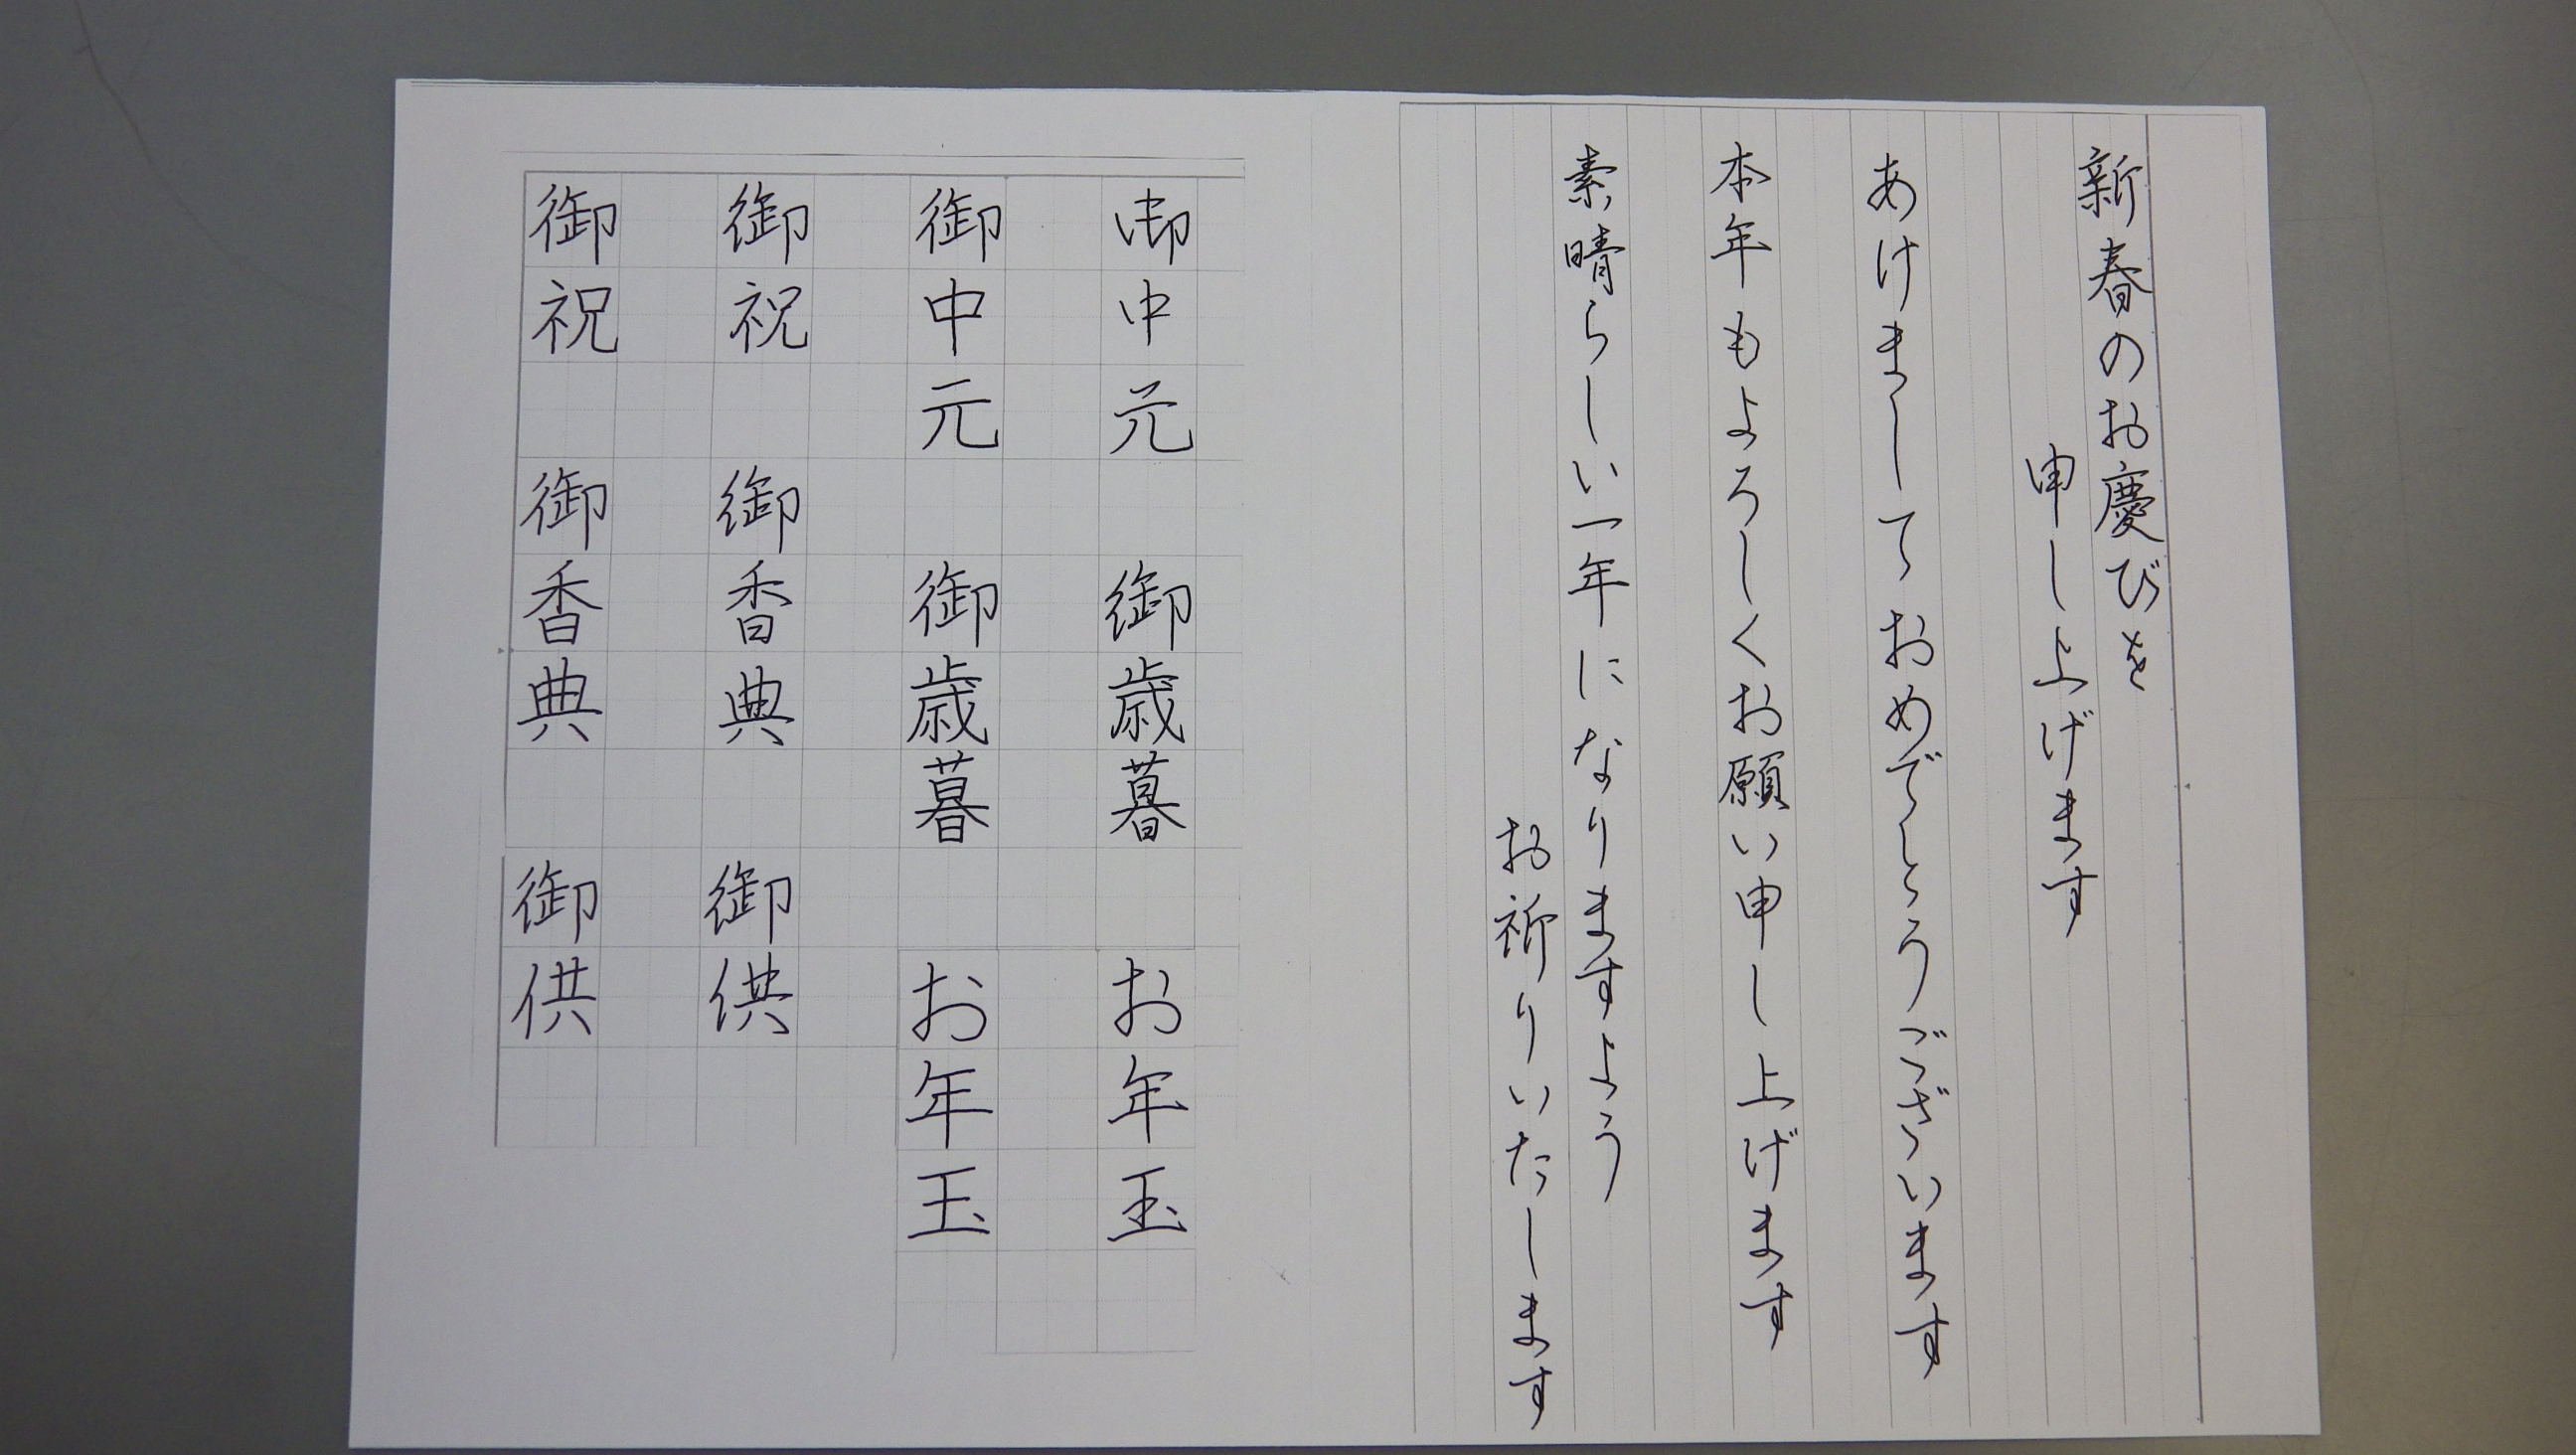 新春のお慶びを
申し上げます
あけましておめでとうございます
本年もよろしくお願い申し上げます
素晴らしい一年になりますよう
お祈りいたします
御中元 御歳暮 お年玉
御中元 御歳暮 お年玉
御祝 御香典 御供
御祝 御香典 御供